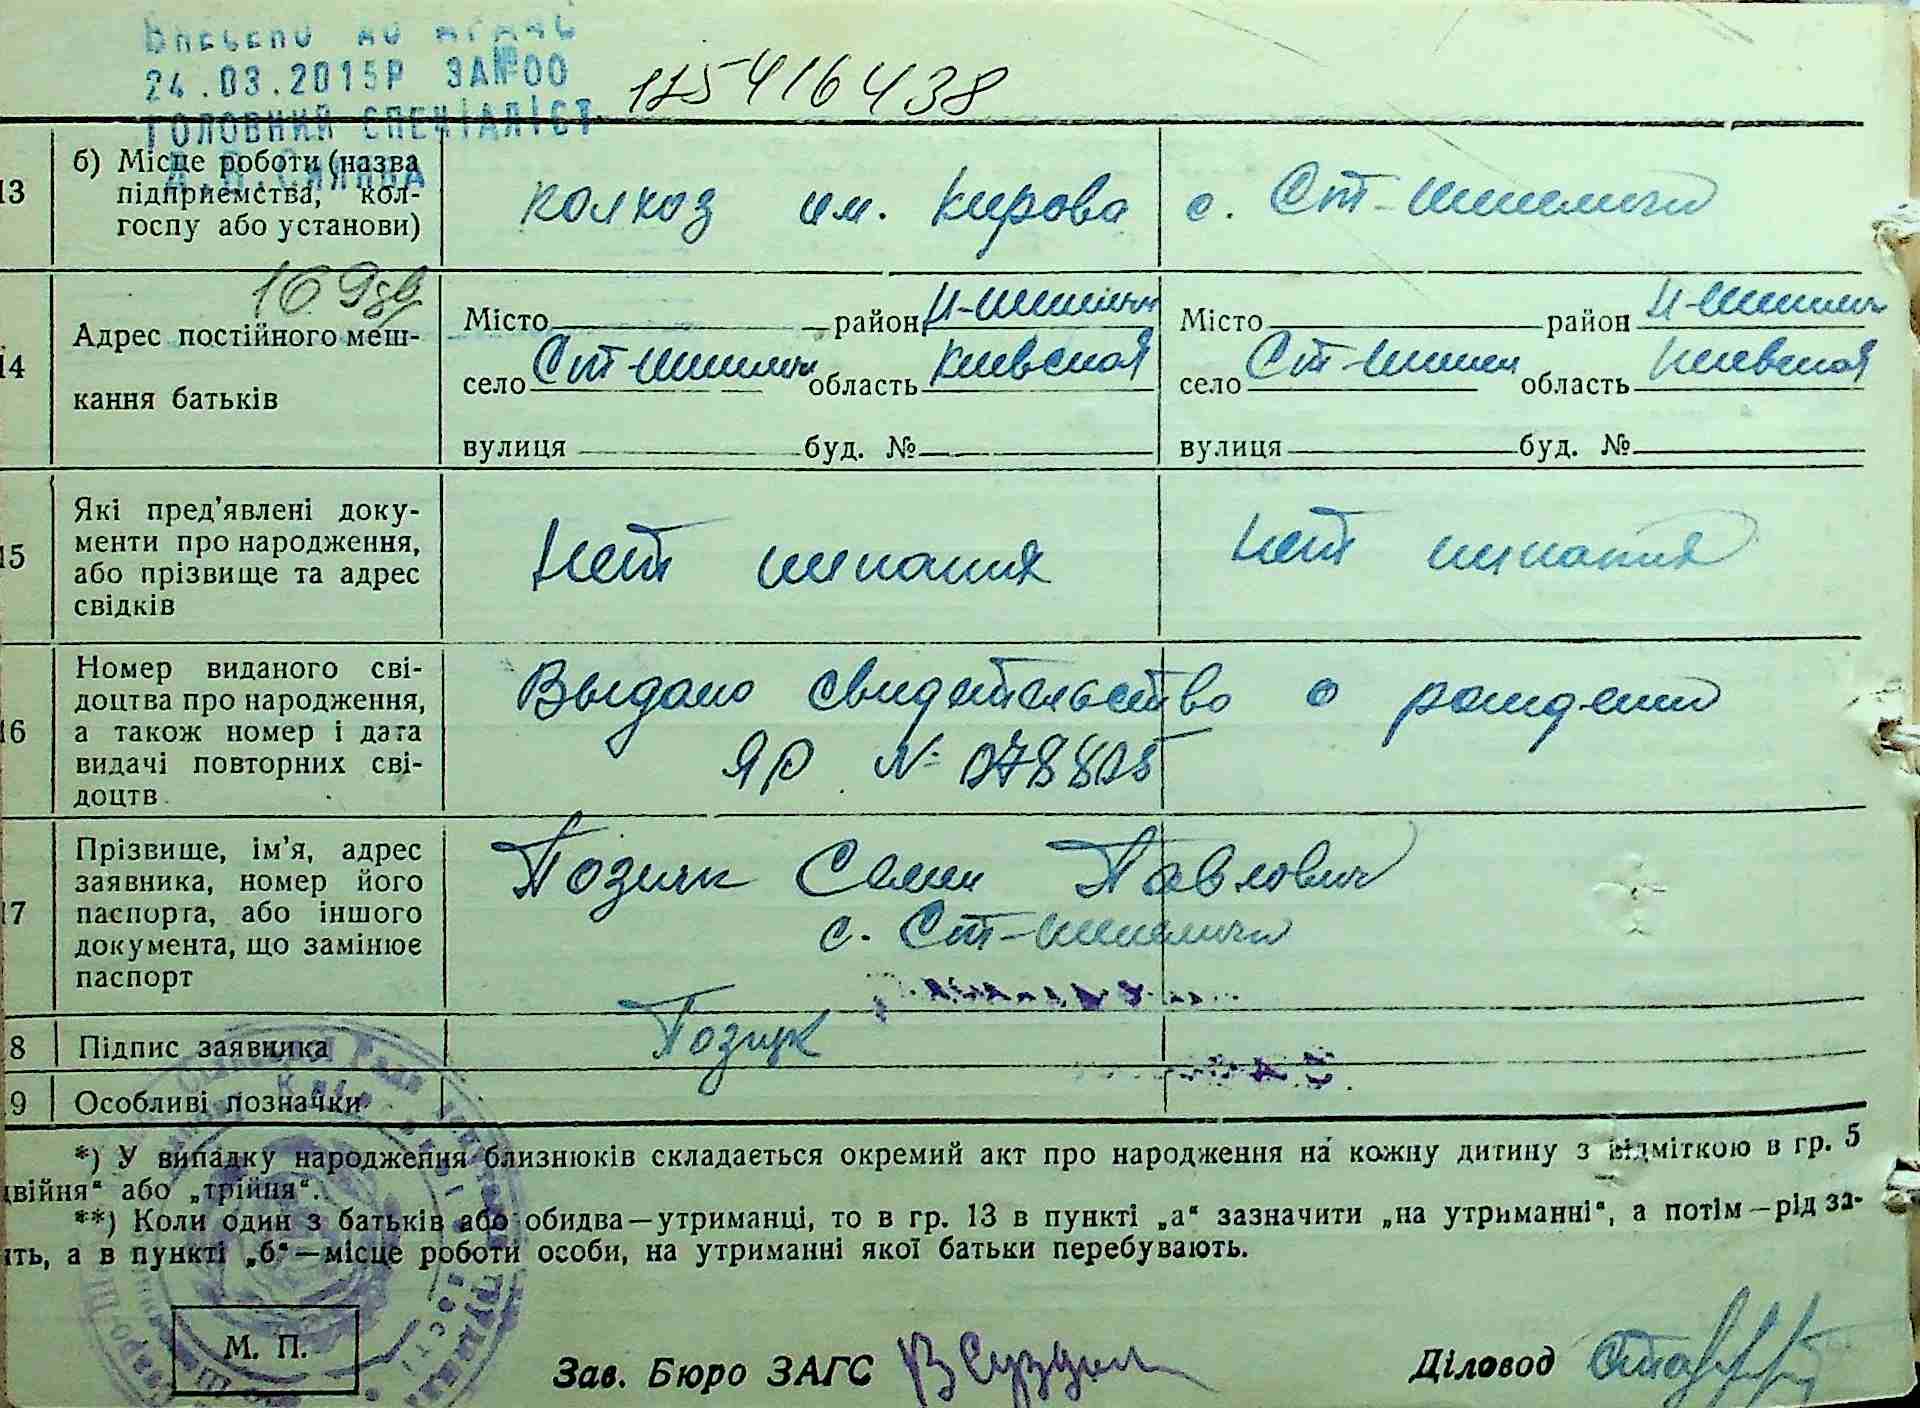 Внесено до ДРАЦС
24.03.2015Р ЗА№00 125416438
ГОЛОВНИЙ СПЕЦІАЛІСТ
13 б) Місце роботи (назва підприємства, колгоспу або установи) колхоз им. Кирова с. Ст-Шепеличи
169зв
14 Адрес постійного мешкання батьків
Місто район Н-Шепеличи
село Ст-Шепеличи область Киевская
вулиця буд. №
Місто район Н-Шепеличи
село Ст-Шепел область Киевская
вулиця буд. №
15 Які пред'явлені документи про народження, або прізвище та адрес свідків
Нет Нет
16 Номер виданого сві-
доцтва про народження,
а також номер і дата
видачі повторних сві-
доцтв
Выдано свидетельство о рождении
ЯР №
17 Прізвище, ім'я, адрес
заявника, номер його
паспорта, або іншого
документа, що замінює
паспорт
Позичк Семен Павлович
с. Ст-Шепеличи
18 Підпис заявника Позичк
19 Особливі позначки
*) У випадку народження близнюків складається окремий акт про народження на кожну дитину з відміткою в гр. 5
двійня“ або „трійня“.
**) Коли один з батьків або обидва—утриманці, то в гр. 13 в пункті „а“ зазначити „на утриманні“, а потім—рід за-
ть, а в пункті „б“—місце роботи особи, на утриманні якої батьки перебувають.
М. П.
Зав. Бюро ЗАГС
Діловод